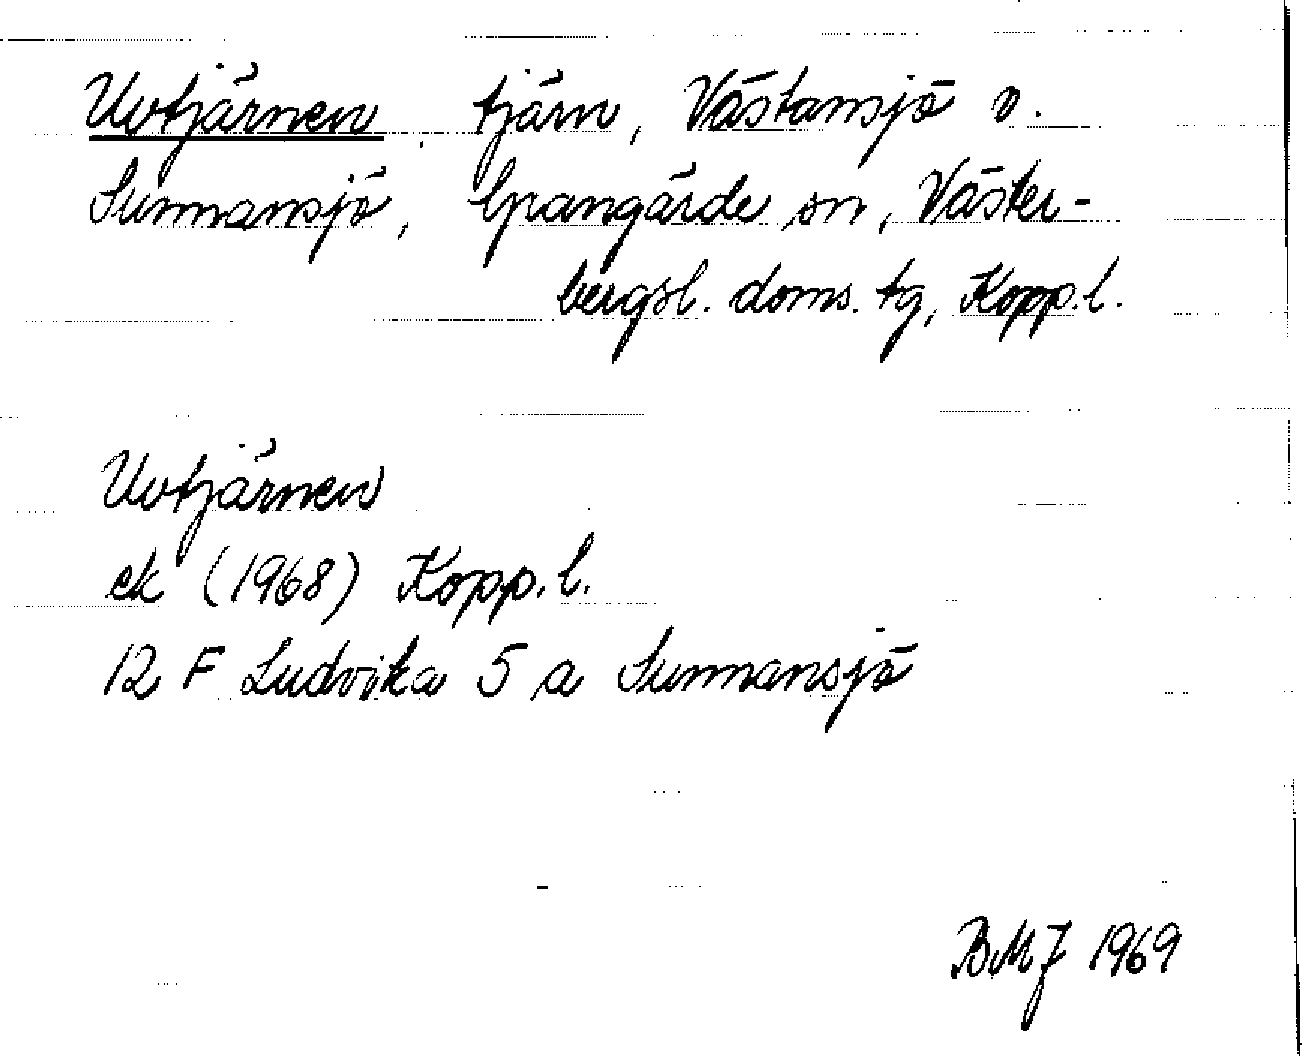 Uvtjärnen tjärn, Västansjö o.
Sunnansjö, Grangärde sn, Väster-
bergsl. doms. tg, Kopp. l.
Uvtjärnen
ek (1968) Kopp. l.
12 F Ludvika 5 a Sunnansjö
BMJ 1969